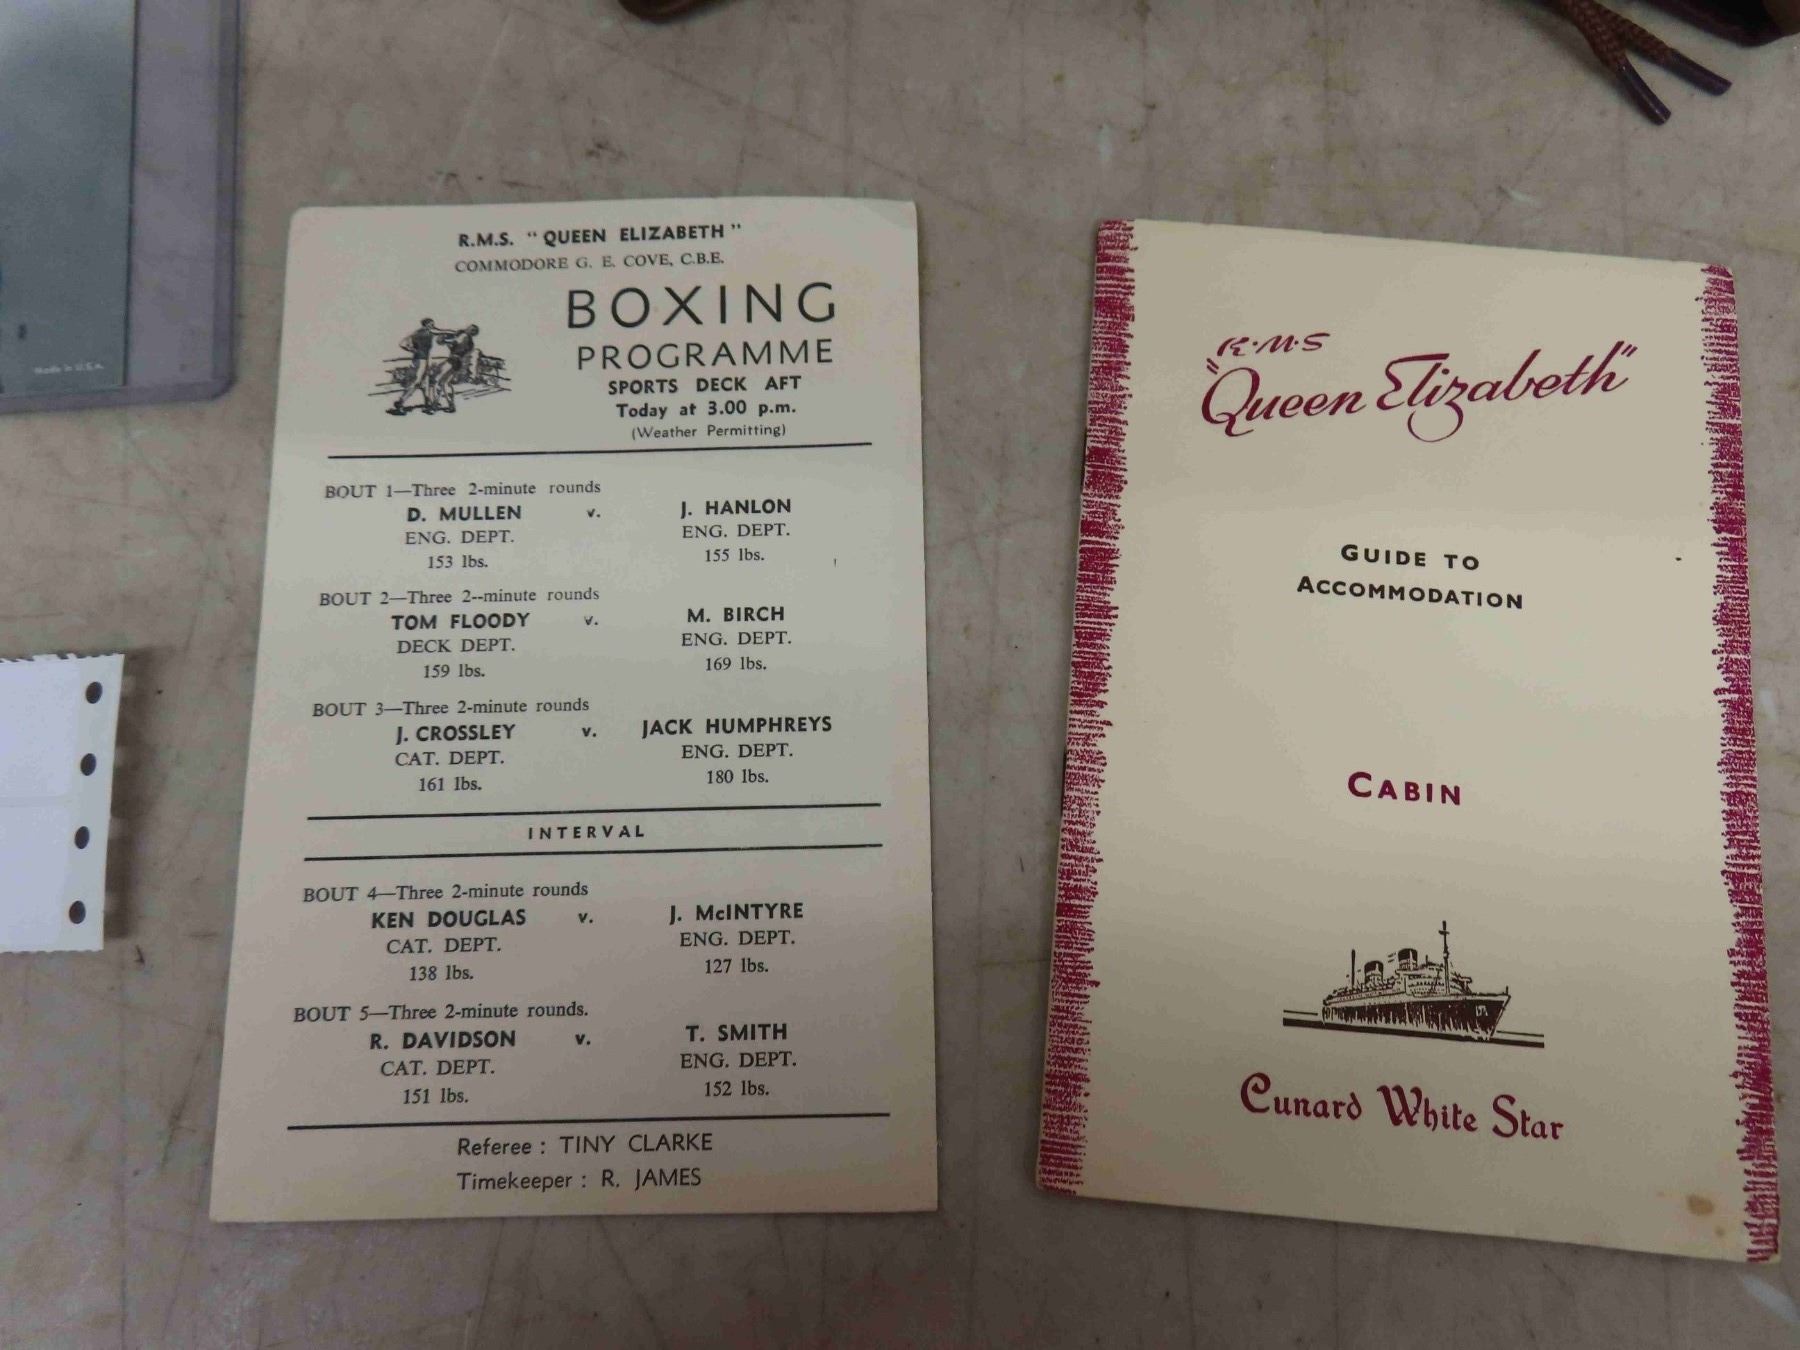 Made in U.S.A.
R.M.S. "QUEEN ELIZABETH"
COMMODORE G. E. COVE, C.B.E.
BOXING
PROGRAMME
SPORTS DECK AFT
Today at 3.00 p.m.
(Weather Permitting)
BOUT 1—Three 2-minute rounds
D. MULLEN v. J. HANLON
ENG. DEPT. ENG. DEPT.
153 lbs. 155 lbs.
BOUT 2—Three 2--minute rounds
TOM FLOODY v. M. BIRCH
DECK DEPT. ENG. DEPT.
159 lbs. 169 lbs.
BOUT 3—Three 2-minute rounds
J. CROSSLEY v. JACK HUMPHREYS
CAT. DEPT. ENG. DEPT.
161 lbs. 180 lbs.
INTERVAL
BOUT 4—Three 2-minute rounds
KEN DOUGLAS v. J. McINTYRE
CAT. DEPT. ENG. DEPT.
138 lbs. 127 lbs.
BOUT 5—Three 2-minute rounds.
R. DAVIDSON v. T. SMITH
CAT. DEPT. ENG. DEPT.
151 lbs. 152 lbs.
Referee : TINY CLARKE
Timekeeper : R. JAMES
R·M·S
"Queen Elizabeth"
GUIDE TO
ACCOMMODATION
CABIN
Cunard White Star